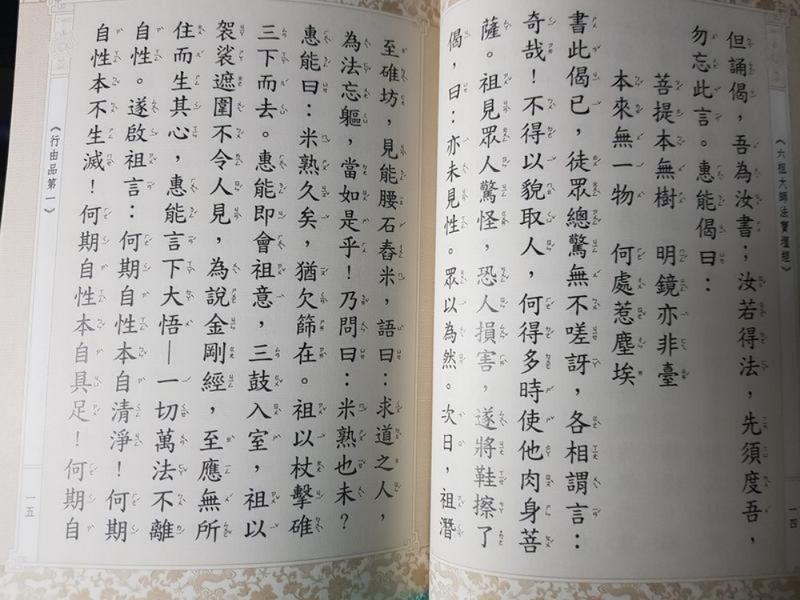 《六祖大師法寶壇經》
但誦偈，吾為汝書；汝若得法，先須度吾，
勿忘此言。惠能偈曰：
菩提本無樹　明鏡亦非臺
本來無一物　何處惹塵埃
書此偈已，徒眾總驚無不嗟訝，各相謂言：
奇哉！不得以貌取人，何得多時使他肉身菩
薩。祖見眾人驚怪，恐人損害，遂將鞋擦了
偈，曰：亦未見性。眾以為然。次日，祖潛
一四
至碓坊，見能腰石舂米，語曰：求道之人，
為法忘軀，當如是乎！乃問曰：米熟也未？
惠能曰：米熟久矣，猶欠篩在。祖以杖擊碓
三下而去。惠能即會祖意，三鼓入室，祖以
袈裟遮圍不令人見，為說金剛經，至應無所
住而生其心，惠能言下大悟—一切萬法不離
自性。遂啟祖言：何期自性本自清淨！何期
自性本不生滅！何期自性本自具足！何期自
《行由品第一》
一五